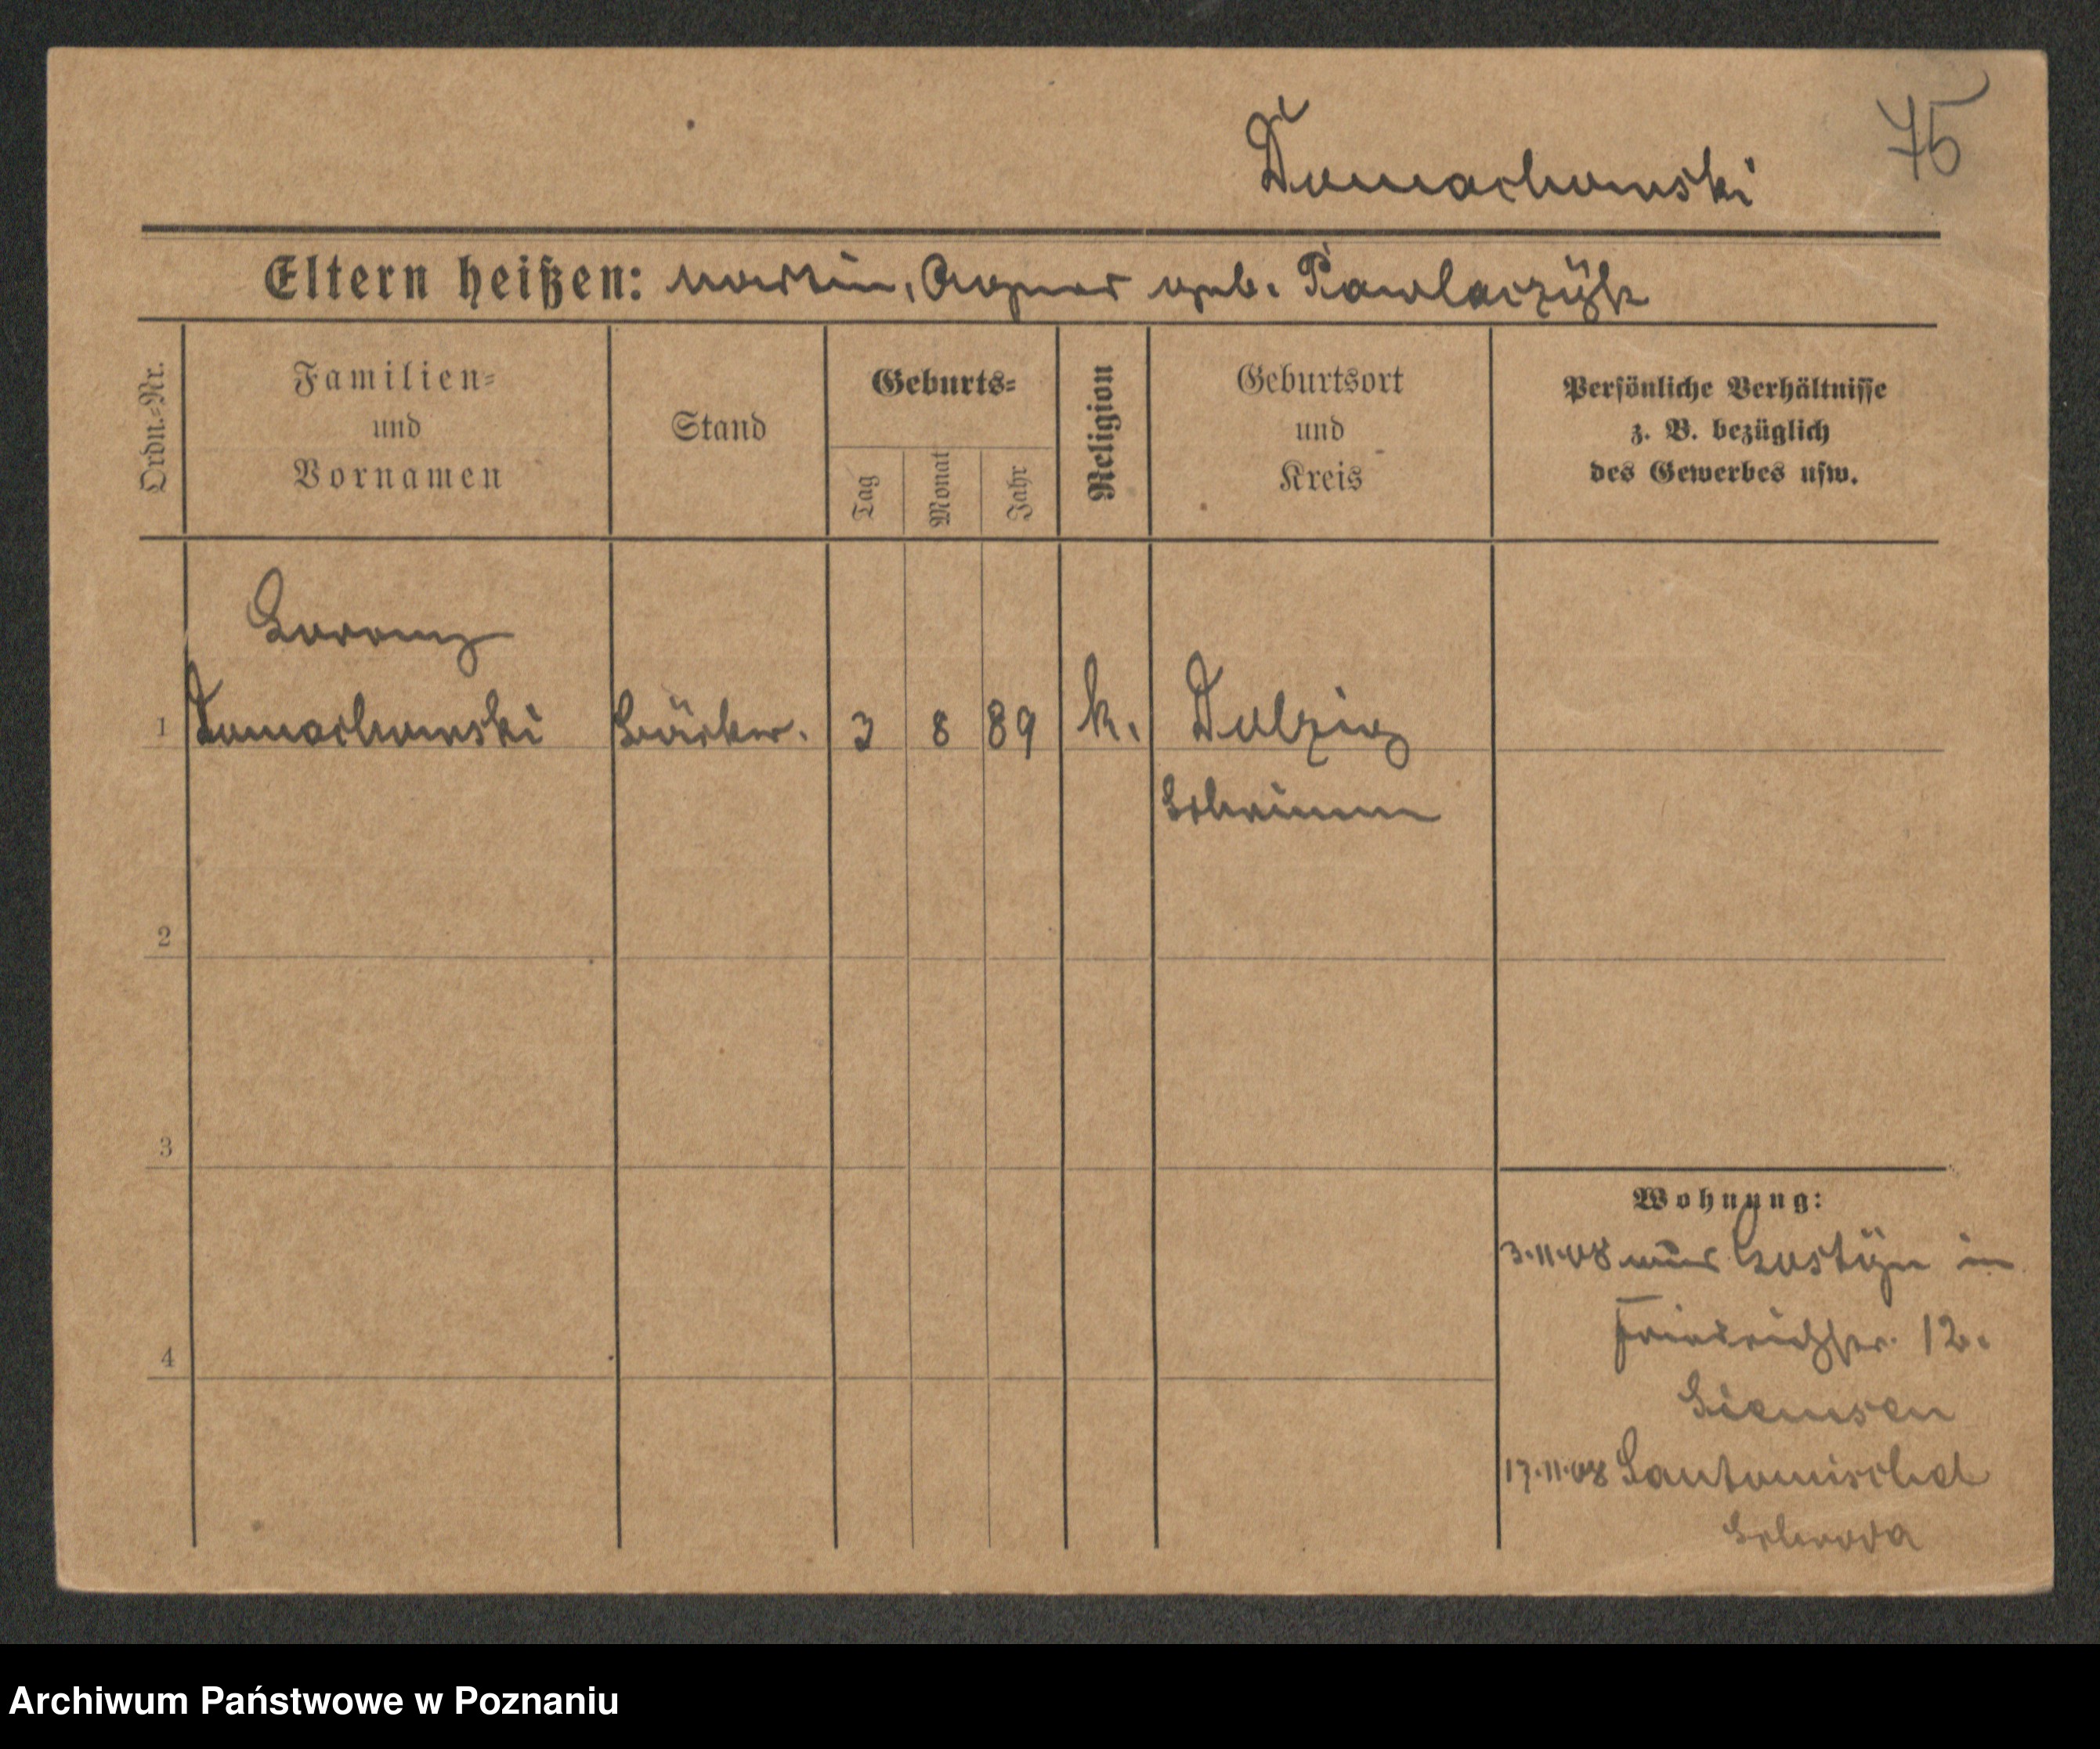 75
Domachowski
Eltern heißen: Martin, Agnes geb. Pawlaczyk
Ordn.-Nr.
Familien-
und
Vornamen
Stand
Geburts-
Tag
Monat
Jahr
Religion
Geburtsort
und
Kreis
Persönliche Verhältnisse
z. B. bezüglich
des Gewerbes usw.
Lorenz
1 Domachowski Bäcker. 3 8 89 k. Dolzig
Schrimm
2
3
4
Wohnung:
3.11.08 aus Gostyn in
Friedrichstr. 12.
17.11.08 Santomischel
Schroda
Archiwum Państwowe w Poznaniu